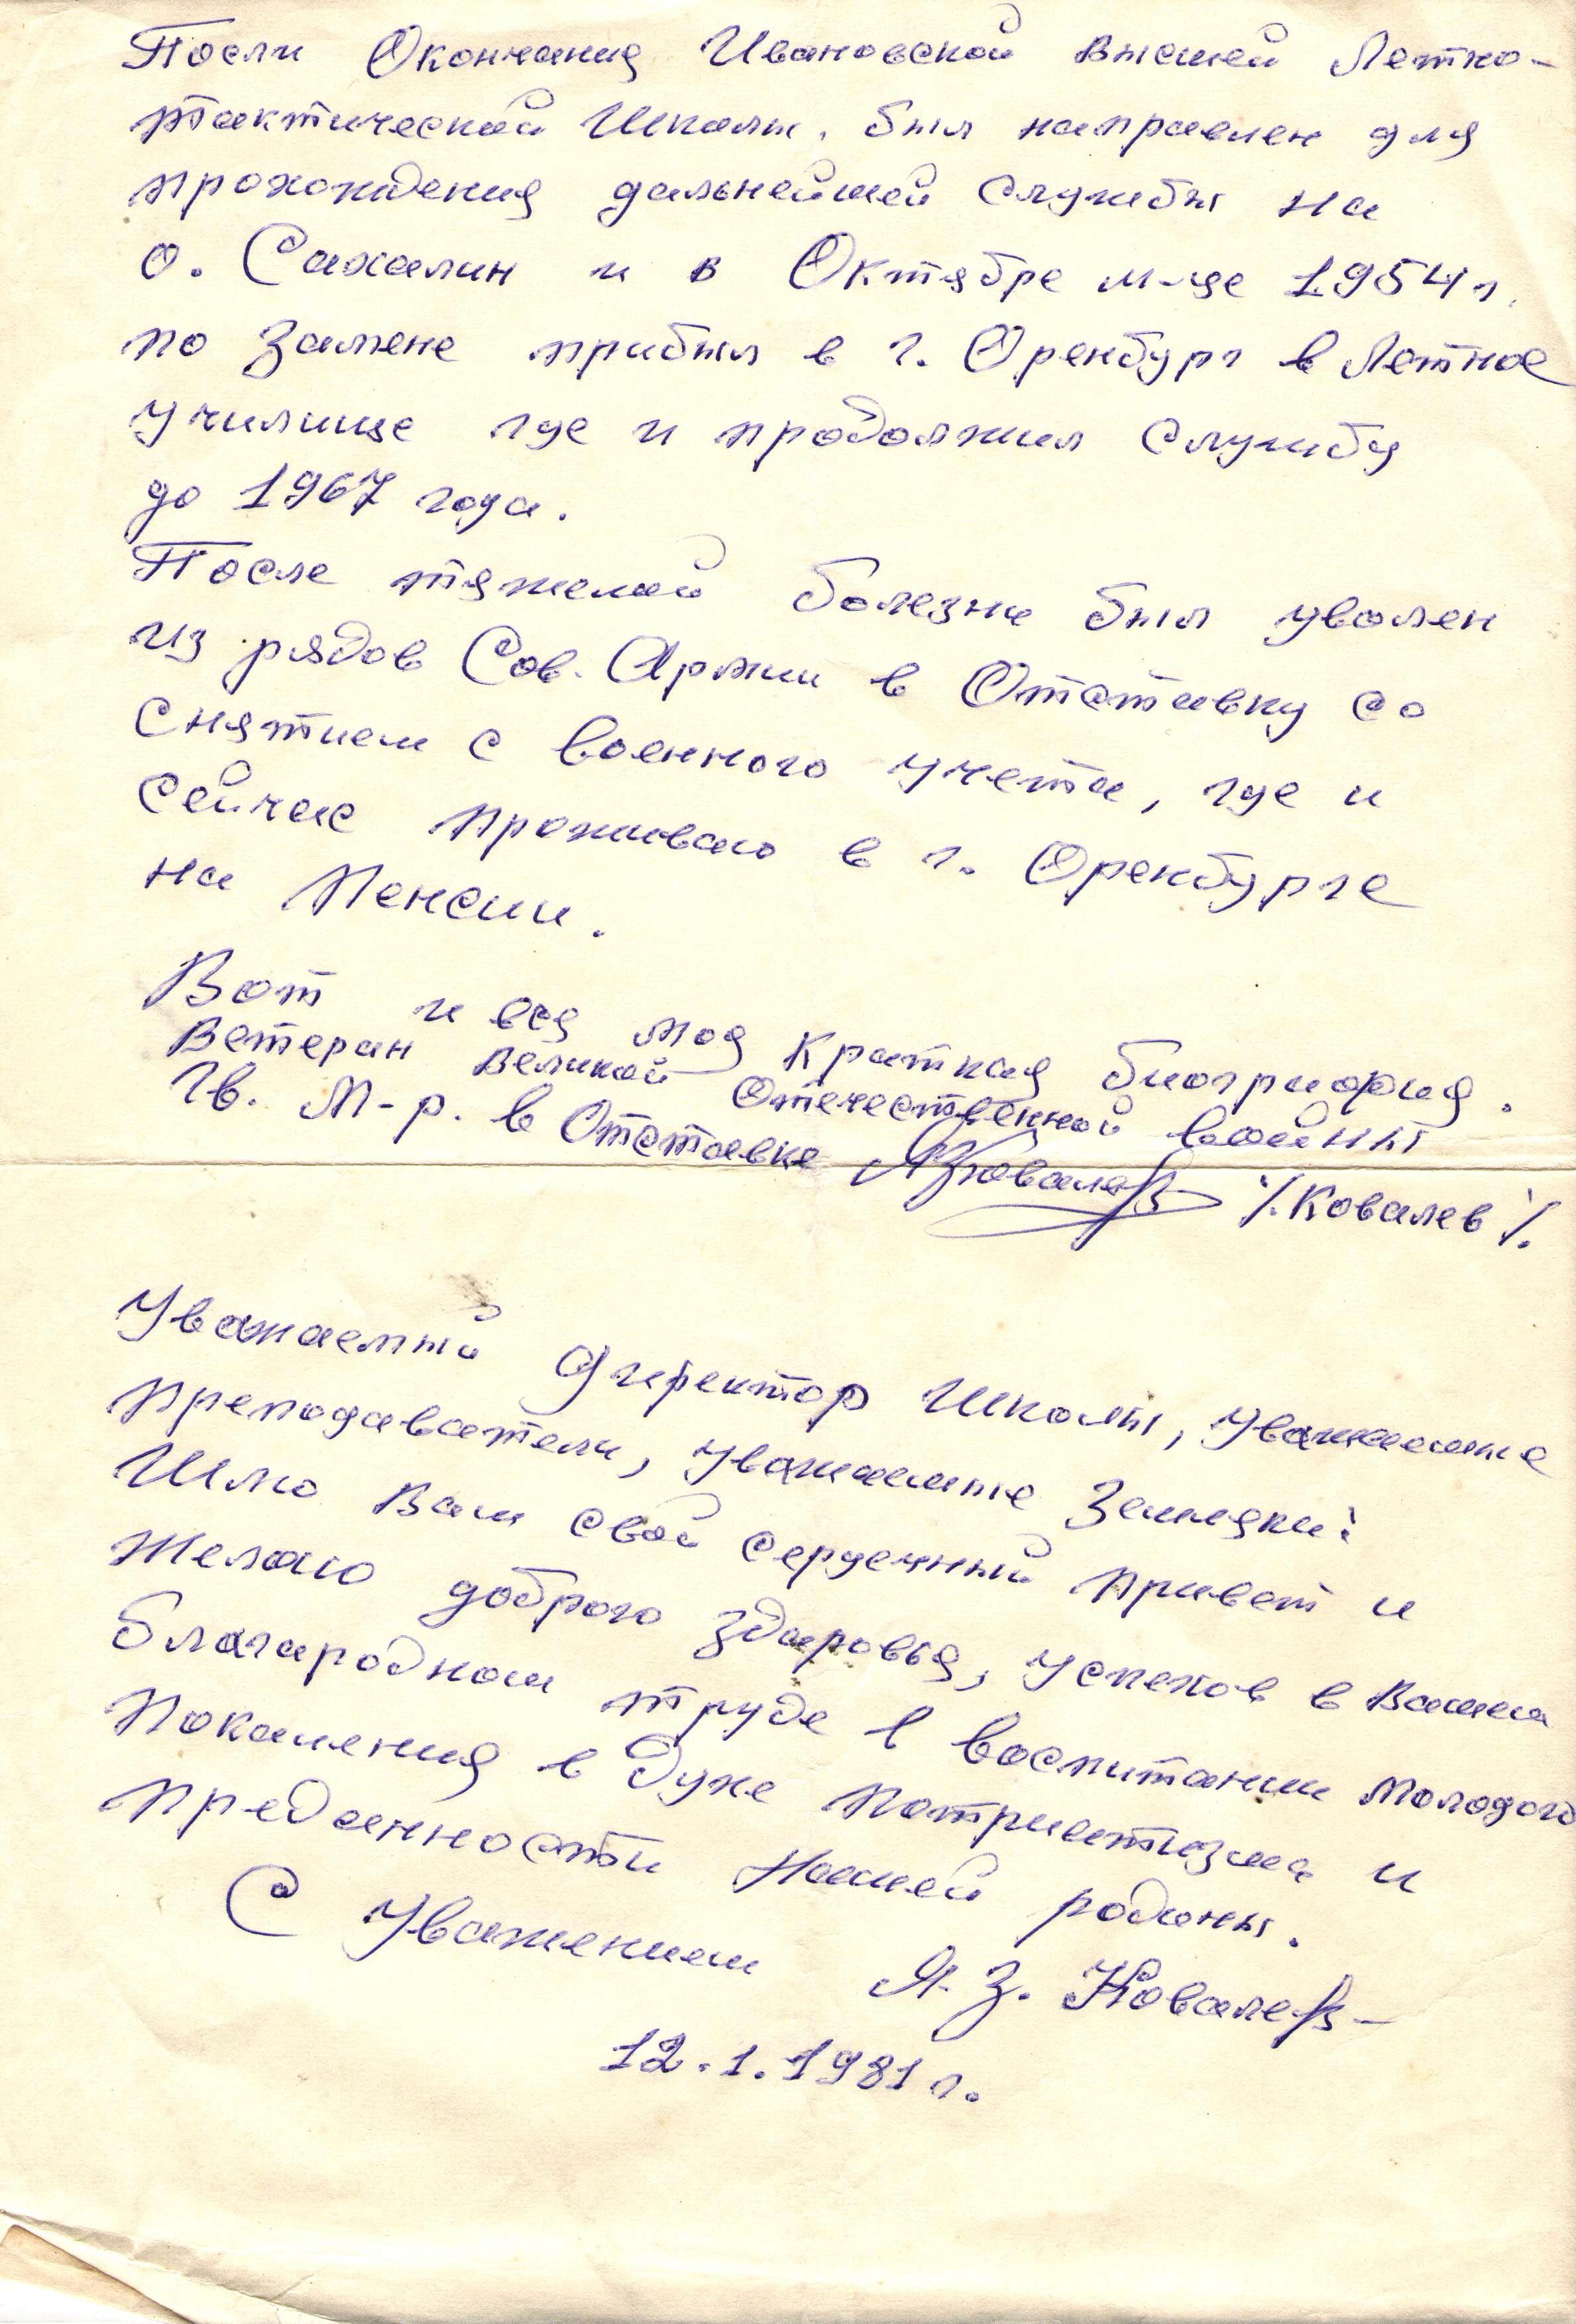 Посли Окончания Ивановской высшей Летно-
тактической Школы, был направлен для
прохождения дальнейшей службы на
о. Сахалин и в Октябре м-це 1954 г.
по замене прибыл в г. Оренбург в Летное
училище где и продолжил службу
до 1967 года.
После тяжелой болезни был уволен
из рядов Сов. Армии в Отставку со
снятием с военного учета, где и
сейчас проживаю в г. Оренбурге
на Пенсии.
Вот и вся моя краткая биография.
Ветеран Великой Отечественной войны
Гв. М-р. в Отставке АЗКовалев /.Ковалев/.
Уважаемый директор Школы, уважаемые
преподаватели, уважаемые Земляки!
Шлю Вам свой сердечный привет и
желаю доброго здоровья, успехов в Вашем
благародном труде в воспитании молодого
поколения в духе патриотизма и
преданности нашей родины.
С Уважением А. З. Ковалев
12.1.1981 г.